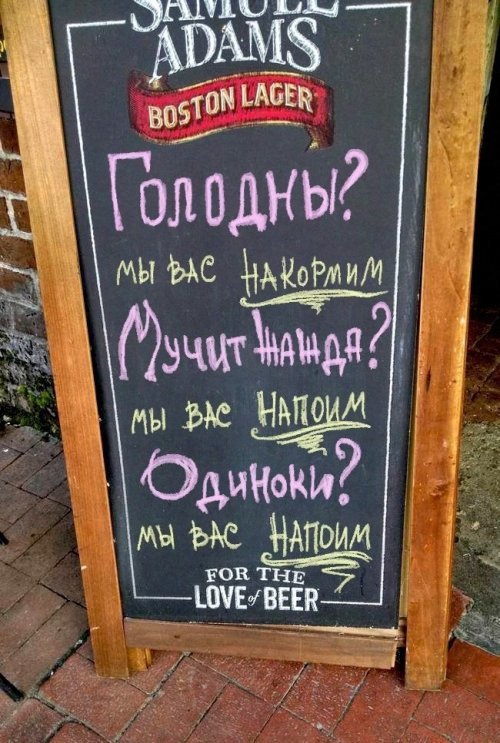 SAMUEL
ADAMS
BOSTON LAGER
Голодны?
мы вас накормим
Мучит жажда?
мы вас напоим
Одиноки?
мы вас напоим
FOR THE
LOVE of BEER